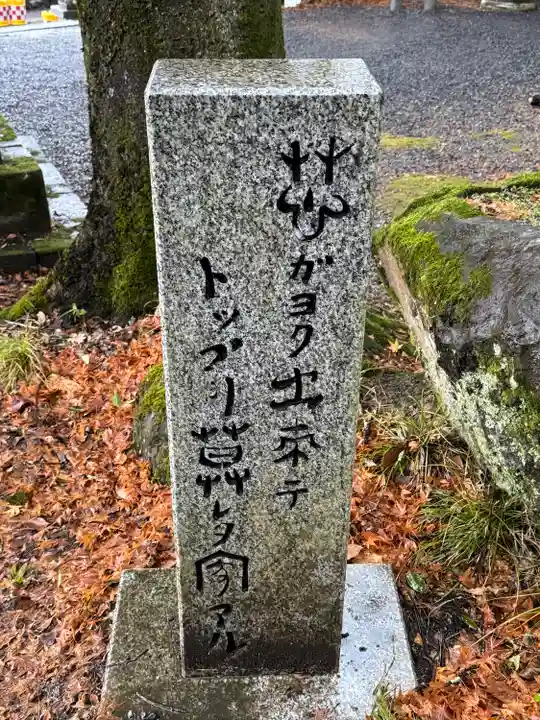 ガヨク出来テ
トップリ暮レタ家アル